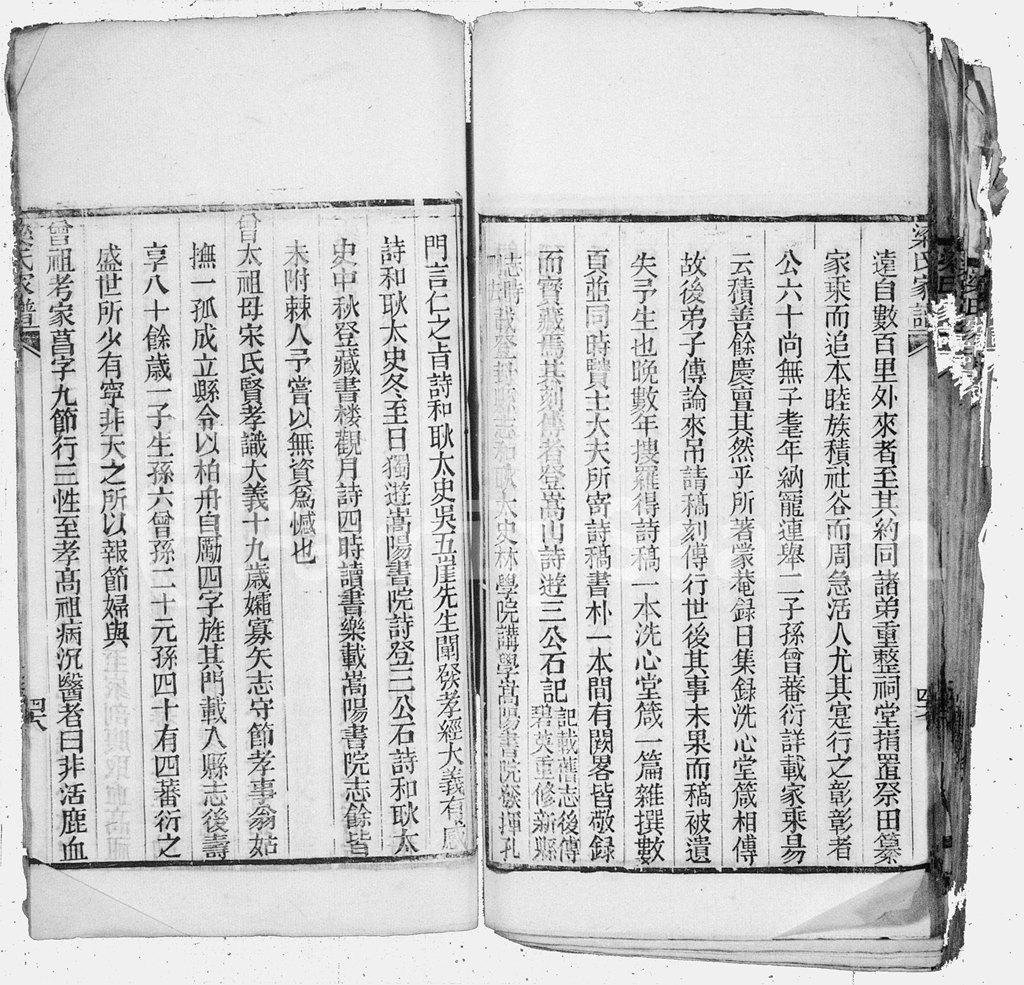 遠自數百里外來者至其約同諸弟重整祠堂捐置祭田纂
家乘而追本睦族積社谷而周急活人尤其寔行之彰彰者
公六十尚無子耄年納寵連舉二子孫曾蕃衍詳載家乘易
云積善餘慶亶其然乎所著蒙菴録日集録洗心堂箴相傳
故後弟子傳論來吊請稿刻傳行世後其事未果而稿被遺
失予生也晚數年搜羅得詩稿一本洗心堂箴一篇雜撰數
頁並同時賢士大夫所寄詩稿書朴一本間有闕畧皆敬録
而寶藏焉其刻傳者登嵩山詩遊三公石記
記載舊志後傳
碧英重修新縣
志時載登封縣志和耿太史林學院講學嵩陽書院發揮孔
門言仁之旨詩和耿太史吳五崖先生闡發孝經大義有感
詩和耿太史冬至日獨遊嵩陽書院詩登三公石詩和耿太
史中秋登藏書楼觀月詩四時讀書樂載嵩陽書院志餘皆
未附棘人予嘗以無資為憾也
曾太祖母宋氏賢孝識大義十九歳孀寡矢志守節孝事翁姑
撫一孤成立縣令以柏舟自勵四字旌其門載入縣志後壽
享八十餘歳一子生孫六曾孫二十元孫四十有四蕃衍之
盛世所少有寧非天之所以報節婦與
曾祖考家菖字九節行三性至孝髙祖病沉醫者曰非活鹿血
梁氏家譜
四六
梁氏家譜